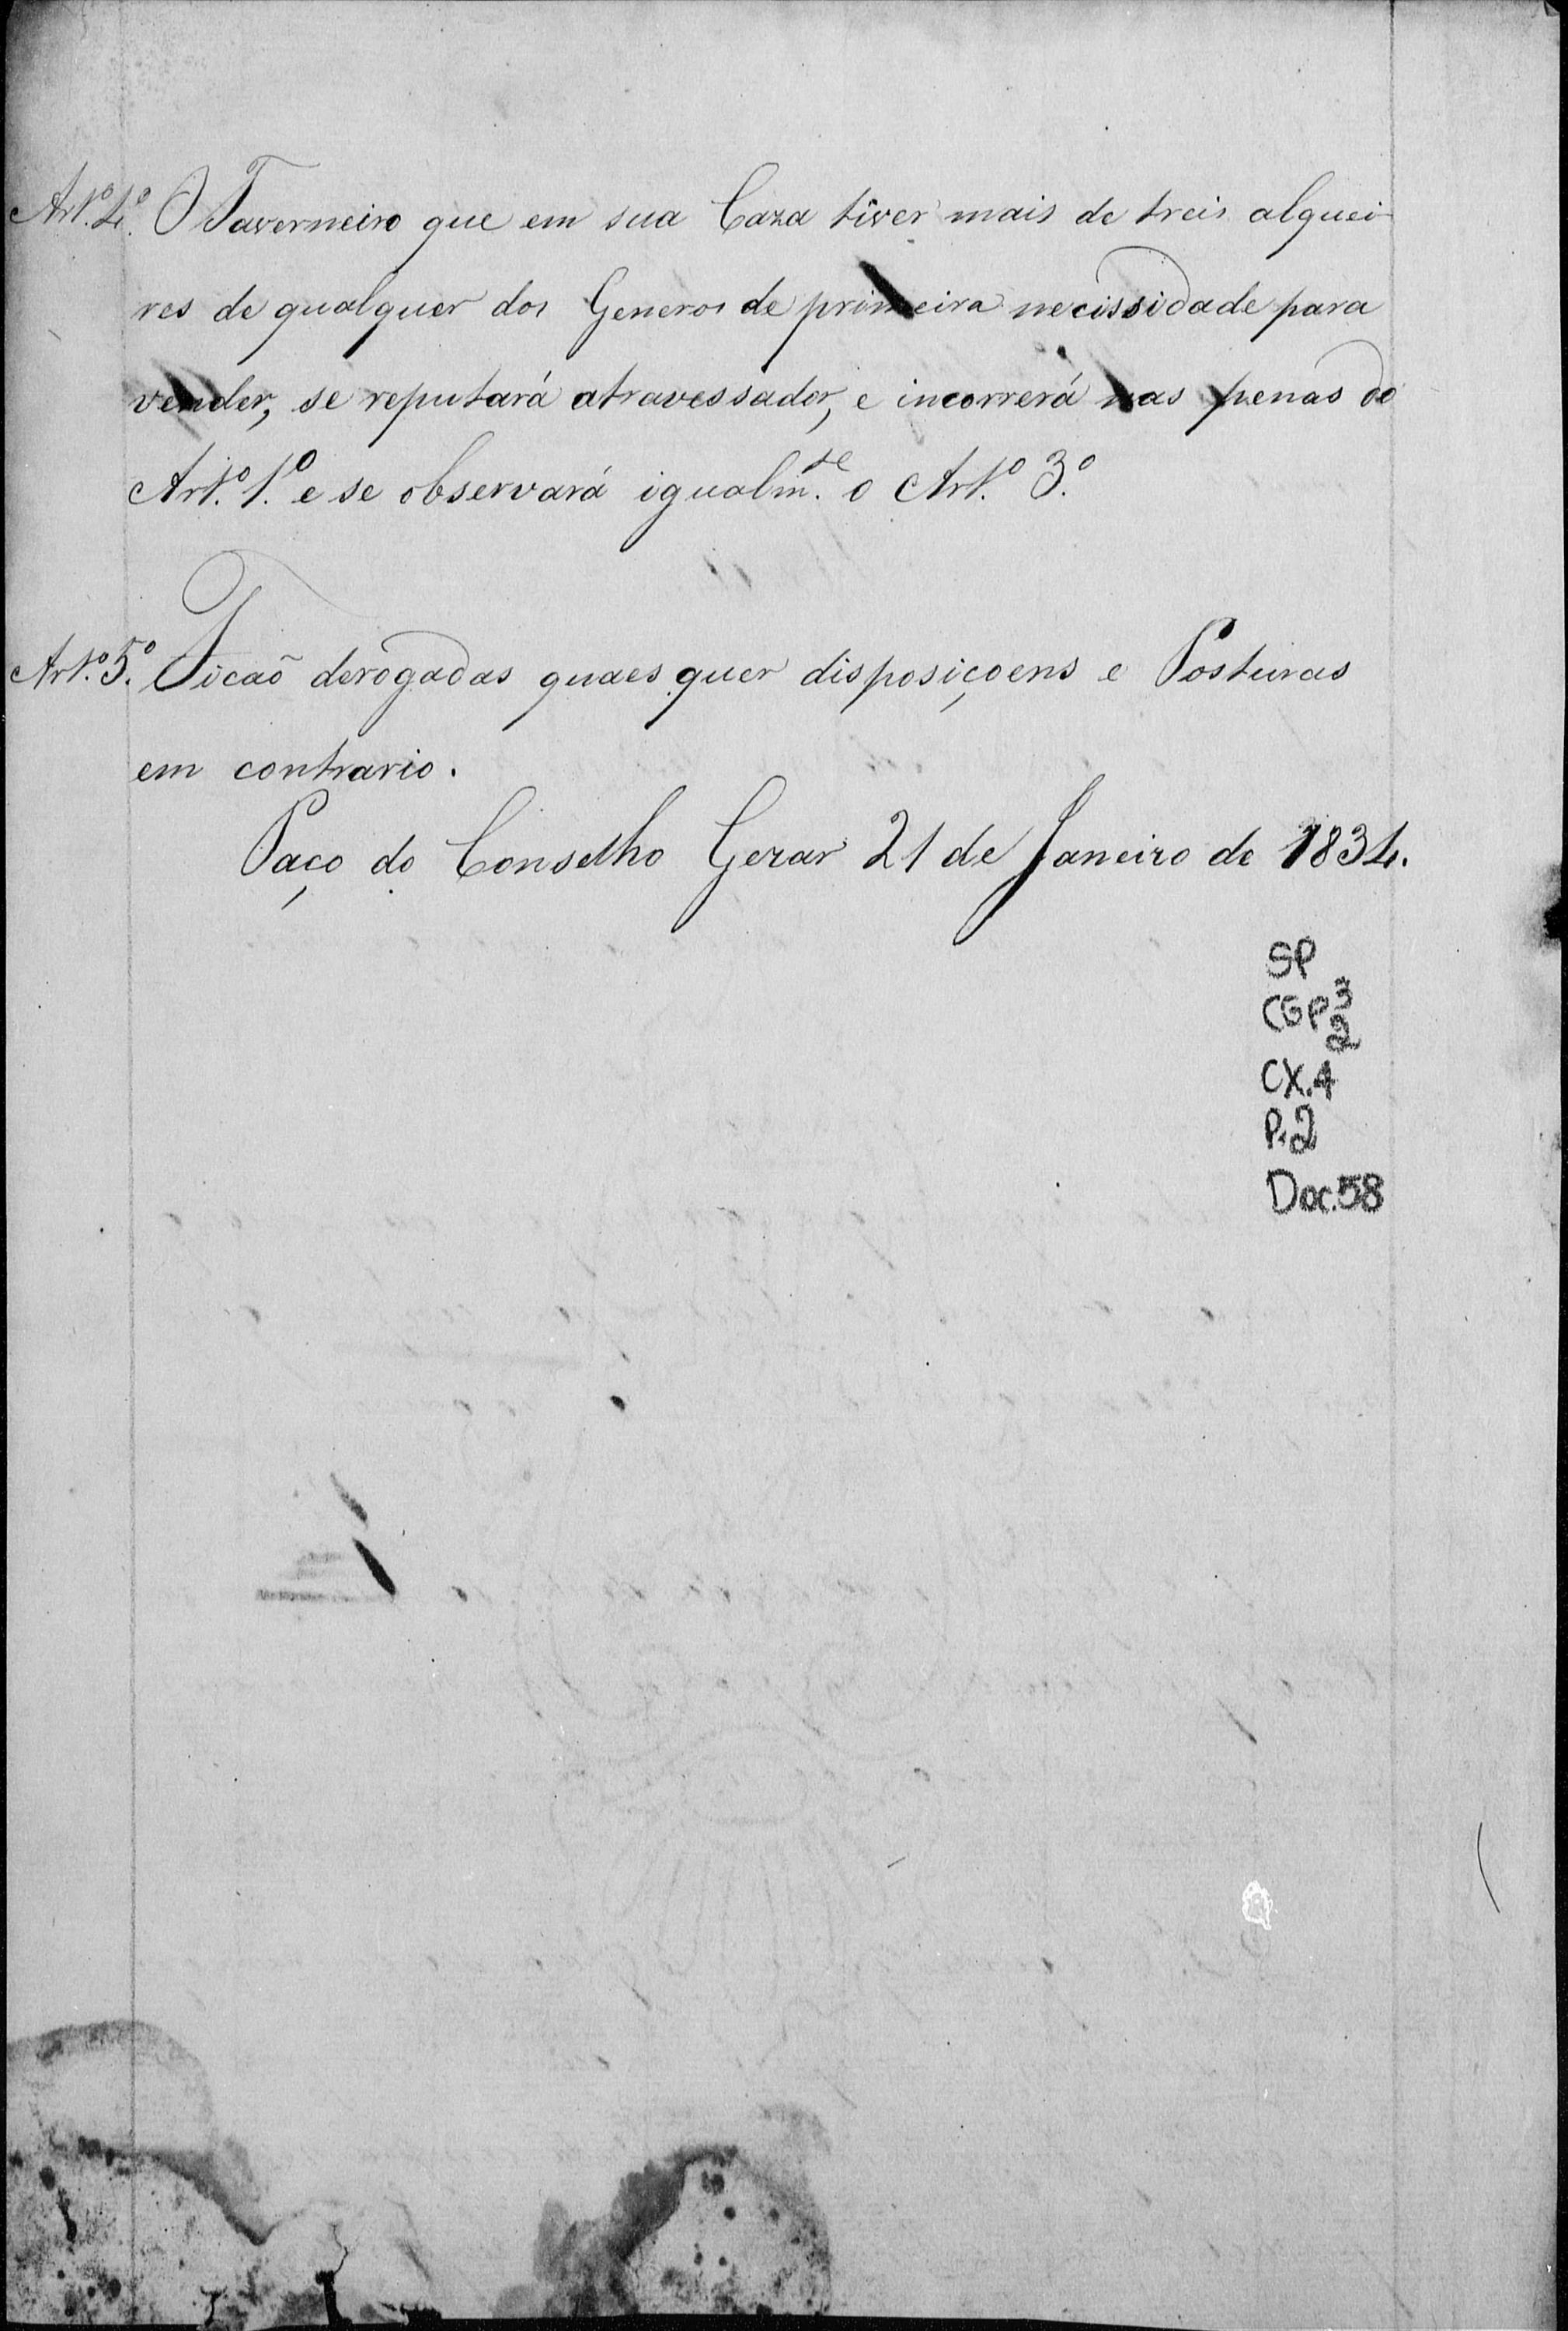 Art.º 4.º O Taverneiro que em sua Caza tiver mais de treis alquei-
res de qualquer dos Generos de primeira necissidade para
vender, se reputará atravessador, e incorrerá nas penas do
Art.º 1.º e se observará igualm.te o Art.º 3.º
Art.º 5.º Ficaõ derogadas quaes quer disposiçoens e Posturas
em contrario.
Paço do Conselho Gerar 21 de Janeiro de 1834.
SP
CGP 3
2
CX.4
P.2
Doc.58